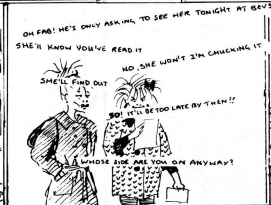 OH FAB! HE'S ONLY ASKING TO SEE HER TONIGHT AT BEV'S
SHE'LL KNOW YOU'VE READ IT
NO, SHE WON'T I'M CHUCKING IT
SHE'LL FIND OUT
SO! IT'LL BE TOO LATE BY THEN!!
WHOSE SIDE ARE YOU ON ANYWAY?